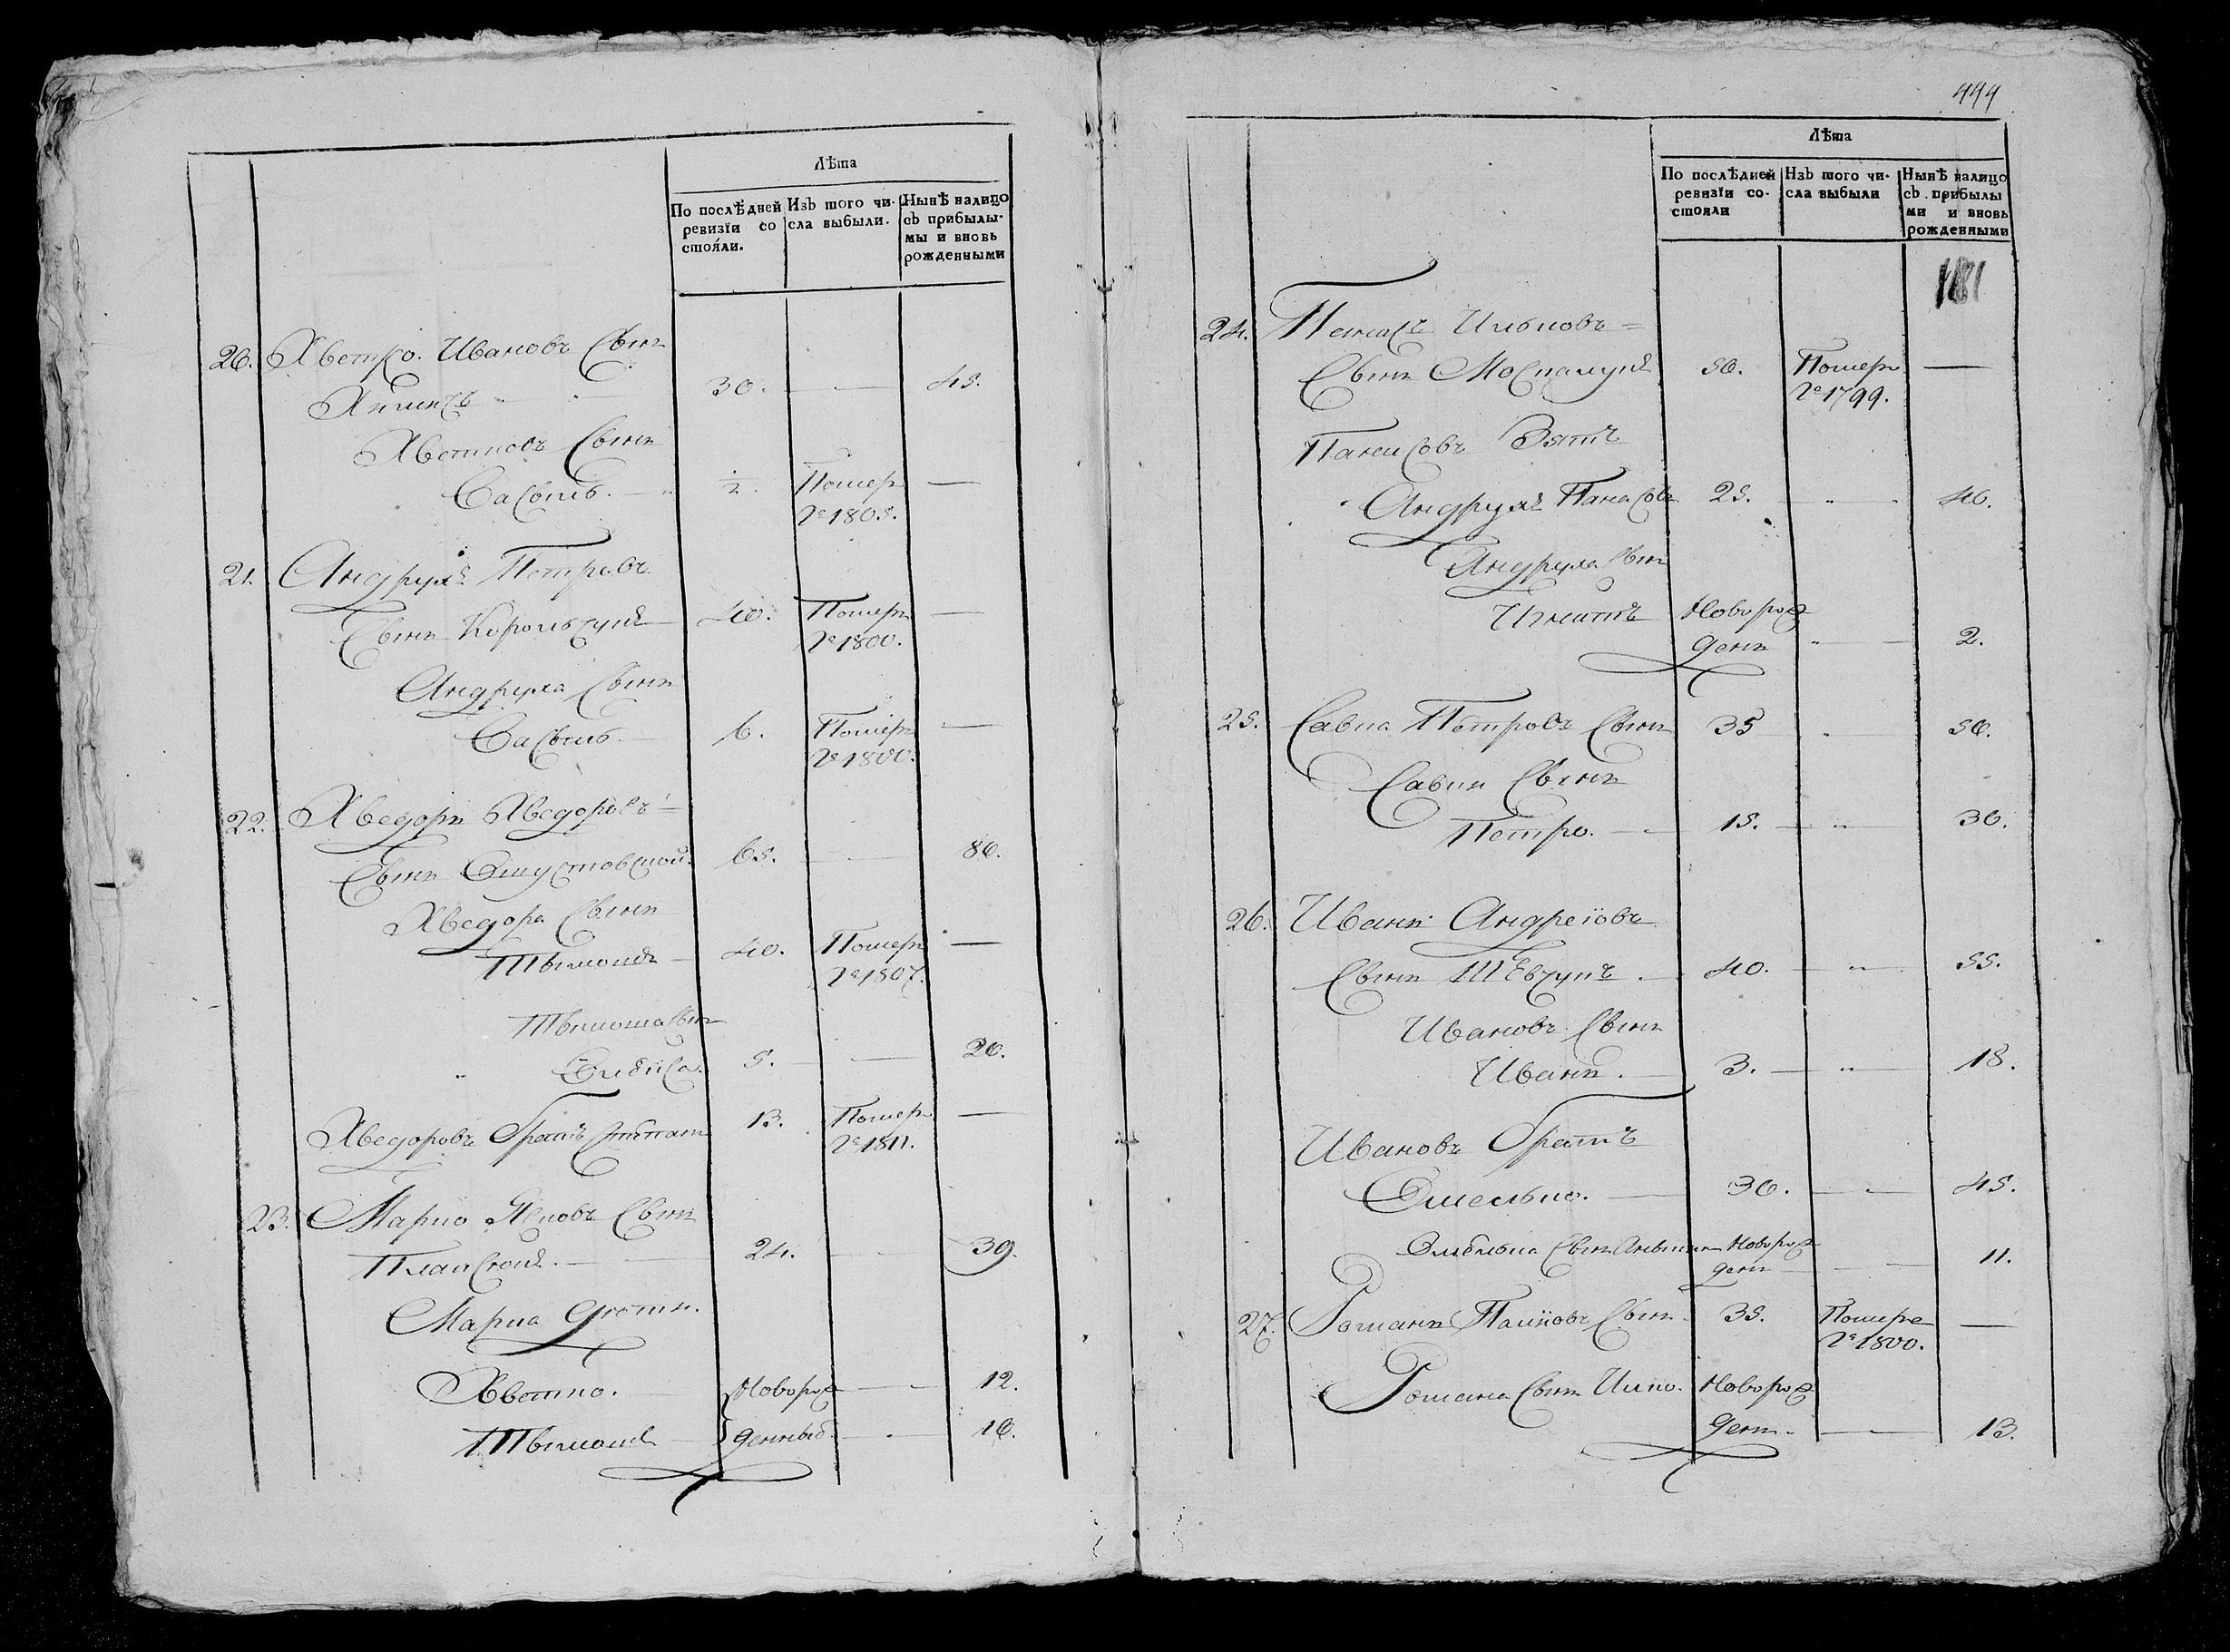 Лѣта
По послѣдней ревизїи со стояли.
Изъ того числа выбыли.
Нынѣ налицо съ прибылымы и вновь рожденными
20. Хветко Ивановъ Сынъ
30. — 45.
Хветковъ Сынъ
Василь. — ½. Помер —
1805.
21. Андрухъ Петровъ
Сынъ — 40. Померъ —
1800.
Андруха Сынъ
Василь. — 6. Померъ —
1800.
22. Хведоръ Хведоровъ =
Сынъ 65. — 80.
Хведора Сынъ
Тымошъ — 40. Померъ —
1807.
Тымоша Сынъ
5. — 20.
Хведоровъ Братъ Степанъ 13. Померъ —
1811.
23. Марко Сынъ
24. — 39.
Марка дѣти.
Хветко. — Новорож — 12.
Тымошъ — денные — 10.
444
Лѣта
По послѣдней ревизїи состояли
Изъ того числа выбыли
Нынѣ налицо съ прибылы ми и вновь рожденными
181
24. Панасъ Ильковъ =
Сынъ 50. Померъ —
1799.
Панасовъ Зять
Андрухъ Панасовъ 25. — 40.
Андруха Сынъ
Игнатъ Новорож
денъ — 2.
25. Савка Петровъ Сынъ 35 — 50.
Савки Сынъ
Петро. — 15. — 30.
26. Иванъ Андреїовъ
Сынъ Шевчукъ. — 40. — 55.
Ивановъ Сынъ
Иванъ. — 3. — 18.
Ивановъ Братъ
Омелько. — 30. — 45.
Омелька Сынъ Новорож
денъ — 11.
27. Романъ Сынъ 35. Помере —
1800.
Романа Сынъ Илко. Новорож
денъ. — 13.